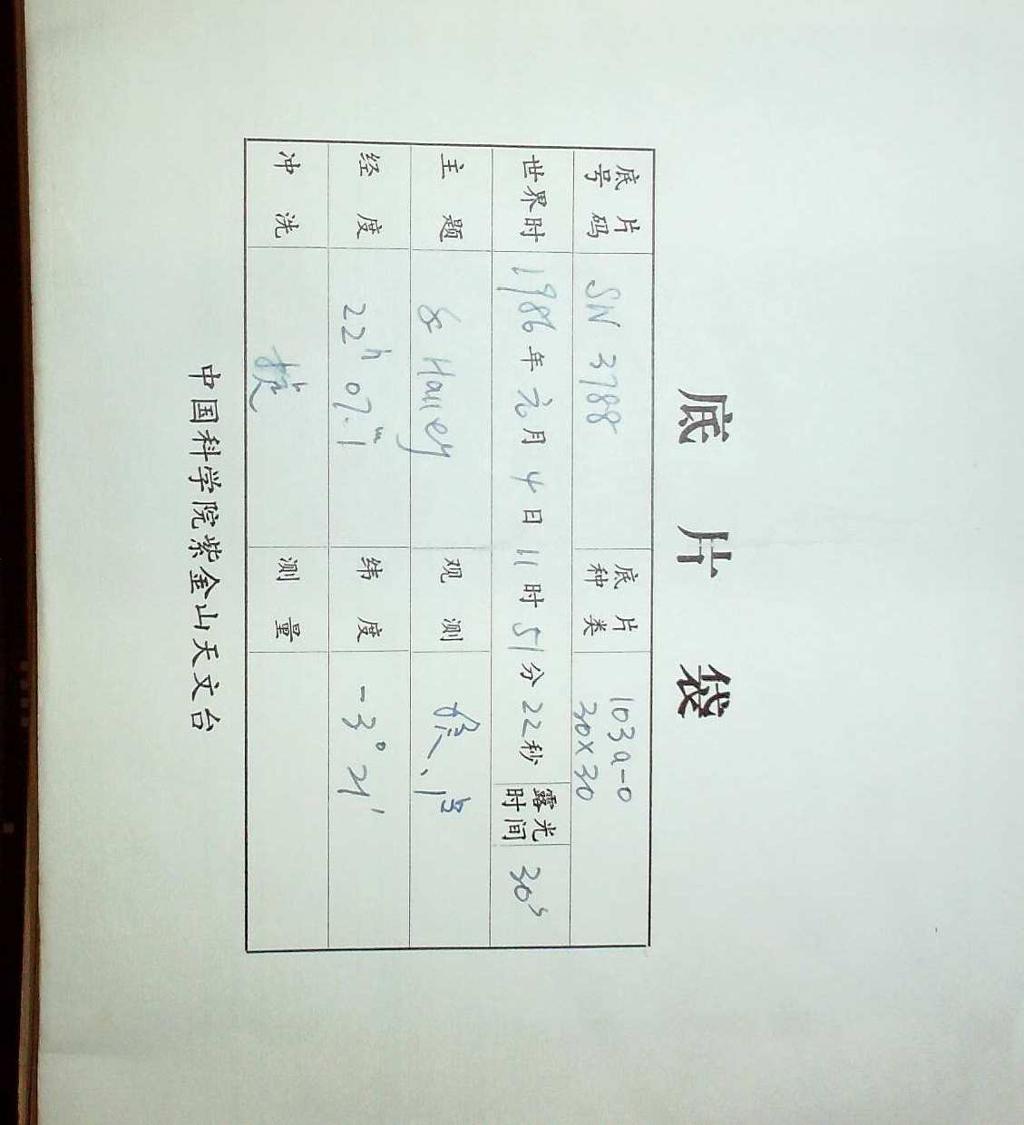 底片袋
底片号码 SN 3788 底片种类 103a-0 30×30
世界时 1986年元月4日11时51分22秒 露光时间 30s
主题 & Halley 观测
经度 22h 07m.1 纬度 -3° 21'
冲洗 测量
中国科学院紫金山天文台